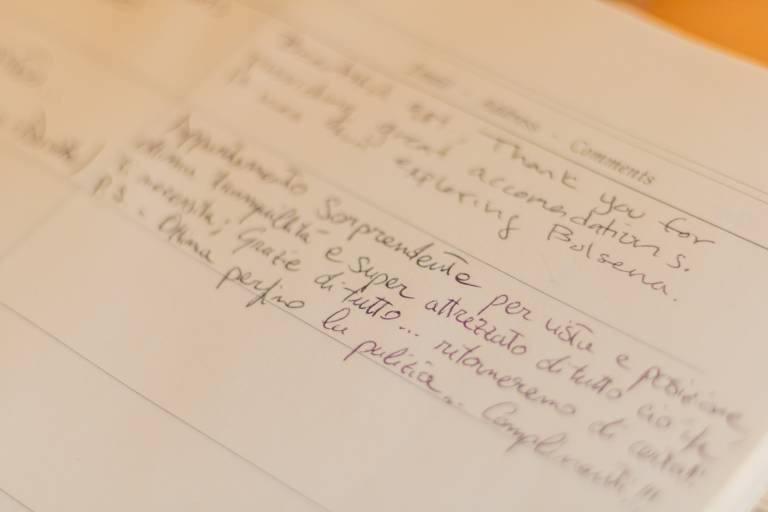 Comments
Thank you for
providing great accomendations.
exploring Bolsena.
Appartamento Sorprendente per vista e posizione,
ottima tranquillità e super attrezzato di tutto ciò che
necessita; Grazie di tutto... ritorneremo di certo!
P.S. - Ottima perfino la pulizia... Complimenti!!!